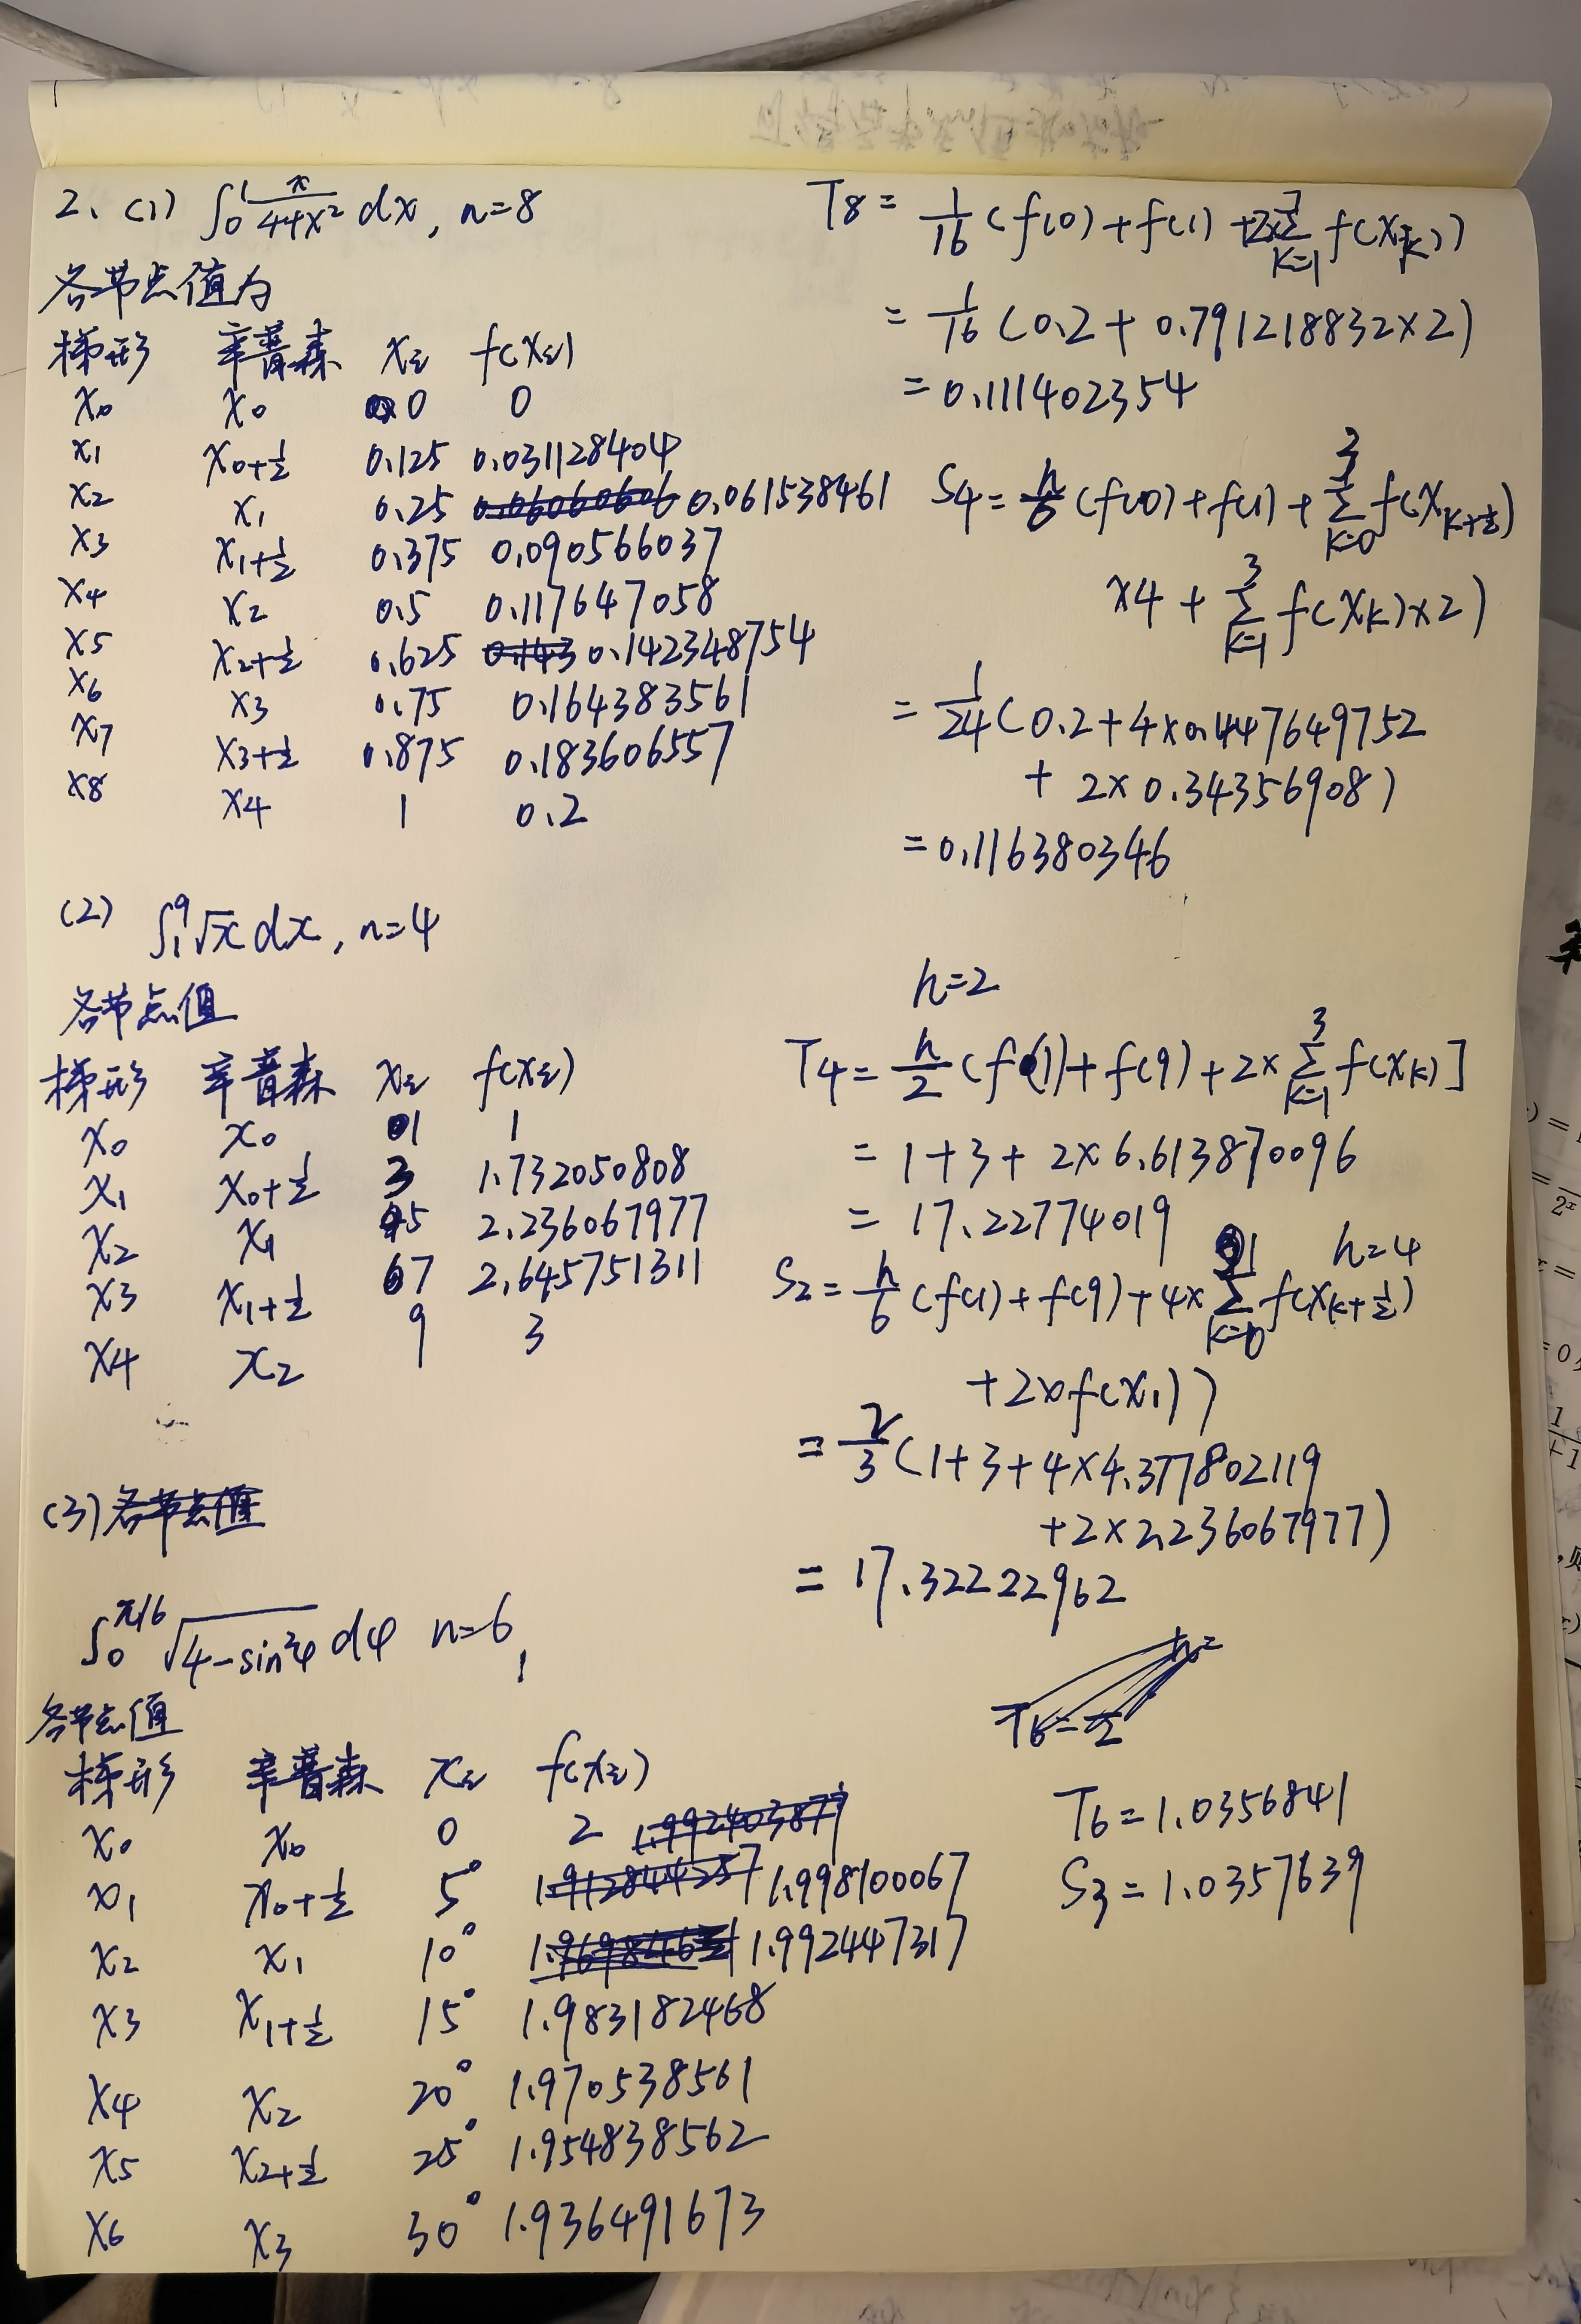 2、(1) ∫₀¹ x/(4+x²) dx, n=8
各节点值为
梯形 辛普森 xᵢ f(xᵢ)
x₀ x₀ 0 0
x₁ x₀₊½ 0.125 0.031128404
x₂ x₁ 0.25 0.061538461
x₃ x₁₊½ 0.375 0.090566037
x₄ x₂ 0.5 0.117647058
x₅ x₂₊½ 0.625 0.142348754
x₆ x₃ 0.75 0.164383561
x₇ x₃₊½ 0.875 0.183606557
x₈ x₄ 1 0.2
T₈ = 1/16 (f(0) + f(1) + 2×∑ₖ₌₁⁷ f(xₖ))
= 1/16 (0.2 + 0.791218832×2)
= 0.111402354
S₄ = h/6 (f(0) + f(1) + ∑ₖ₌₀³ f(xₖ₊½)
×4 + ∑ₖ₌₁³ f(xₖ)×2)
= 1/24 (0.2 + 4×0.447649752
+ 2×0.34356908)
= 0.116380346
(2) ∫₁⁹ √x dx, n=4
各节点值
梯形 辛普森 xᵢ f(xᵢ)
x₀ x₀ 1 1
x₁ x₀₊½ 3 1.732050808
x₂ x₁ 5 2.236067977
x₃ x₁₊½ 7 2.645751311
x₄ x₂ 9 3
h=2
T₄ = h/2 (f(1) + f(9) + 2×∑ₖ₌₁³ f(xₖ)]
= 1+3+ 2×6.613870096
= 17.22774019
h=4
S₂ = h/6 (f(1) + f(9) + 4×∑ₖ₌₀¹ f(xₖ₊½)
+2×f(x₁))
= 2/3 (1+3+4×4.377802119
+2×2.236067977)
= 17.32222962
(3) 各节点值
∫₀^π/6 √(4-sin²φ) dφ n=6,
各节点值
梯形 辛普森 xᵢ f(xᵢ)
x₀ x₀ 0 2
x₁ x₀₊½ 5° 1.998100067
x₂ x₁ 10° 1.992447317
x₃ x₁₊½ 15° 1.983182468
x₄ x₂ 20° 1.970538561
x₅ x₂₊½ 25° 1.954838562
x₆ x₃ 30° 1.936491673
T₆ = 1.0356841
S₃ = 1.0357639